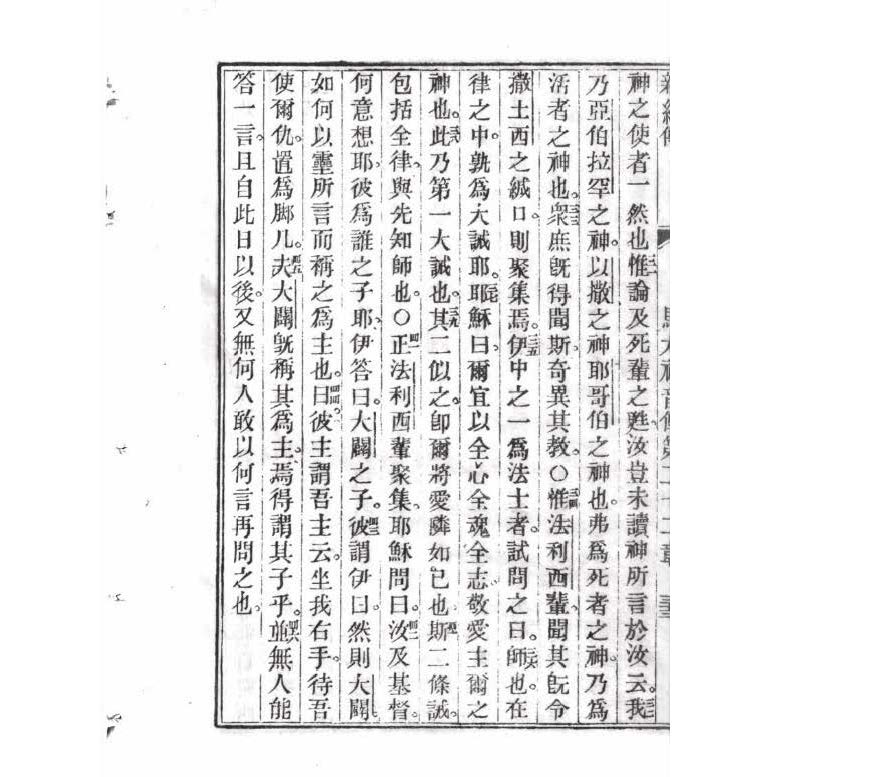 馬太福音傳第二十二章
神之使者一然也惟論及死輩之甦。汝豈未讀神所言於汝云。我
乃亞伯拉罕之神。以撒之神耶哥伯之神也。弗爲死者之神。乃爲
活者之神也。衆庶旣得聞斯。奇異其教。○惟法利西輩。聞其旣令
撒土西之緘口。則聚集焉。伊中之一爲法士者。試問之曰。師也。在
律之中。孰爲大誡耶。耶穌曰。爾宜以全心全魂全志敬愛主爾之
神也。此乃第一大誡也。其二似之。卽爾將愛隣如己也。斯二條誡。
包括全律。與先知師也。○正法利西輩聚集。耶穌問曰。汝及基督。
何意想耶。彼爲誰之子耶。伊答曰。大闢之子。彼謂伊曰。然則大闢
如何以靈所言而稱之爲主也。曰。彼主謂吾主云。坐我右手。待吾
使爾仇。置爲脚几。夫大闢旣稱其爲主。焉得謂其子乎。並無人能
答一言。且自此日以後。又無何人敢以何言再問之也。